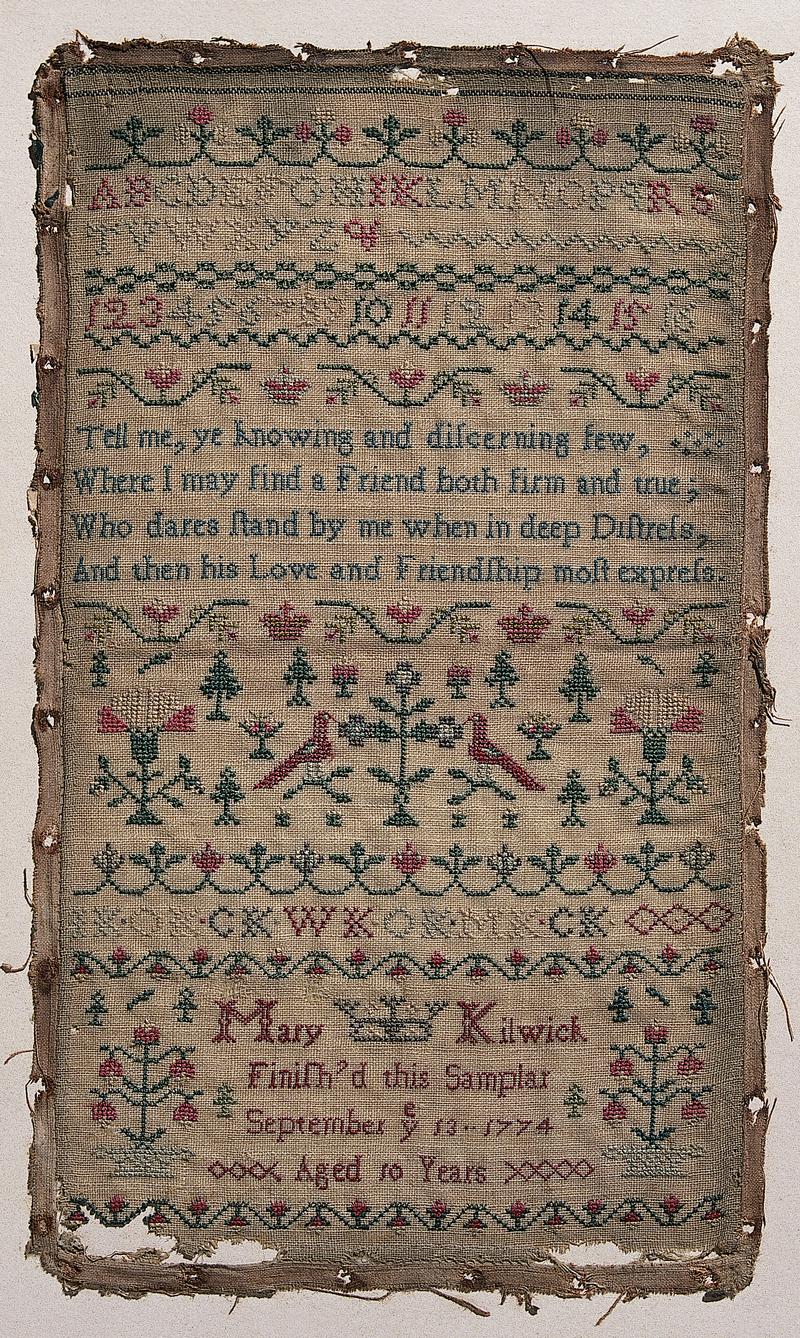 ABCDEFGHIKLMNOPQRS
TVWXYZ &
1 2 3 4 5 6 7 8 9 10 11 12 13 14 15 16
Tell me, ye knowing and diſcerning few,
Where I may find a Friend both firm and true;
Who dares ſtand by me when in deep Diſtreſs,
And then his Love and Friendſhip moſt expreſs.
OK·CK WK OK·MK·CK
Mary Kilwick
Finiſh'd this Samplar
September yͤ 13·· 1774
Aged 10 Years